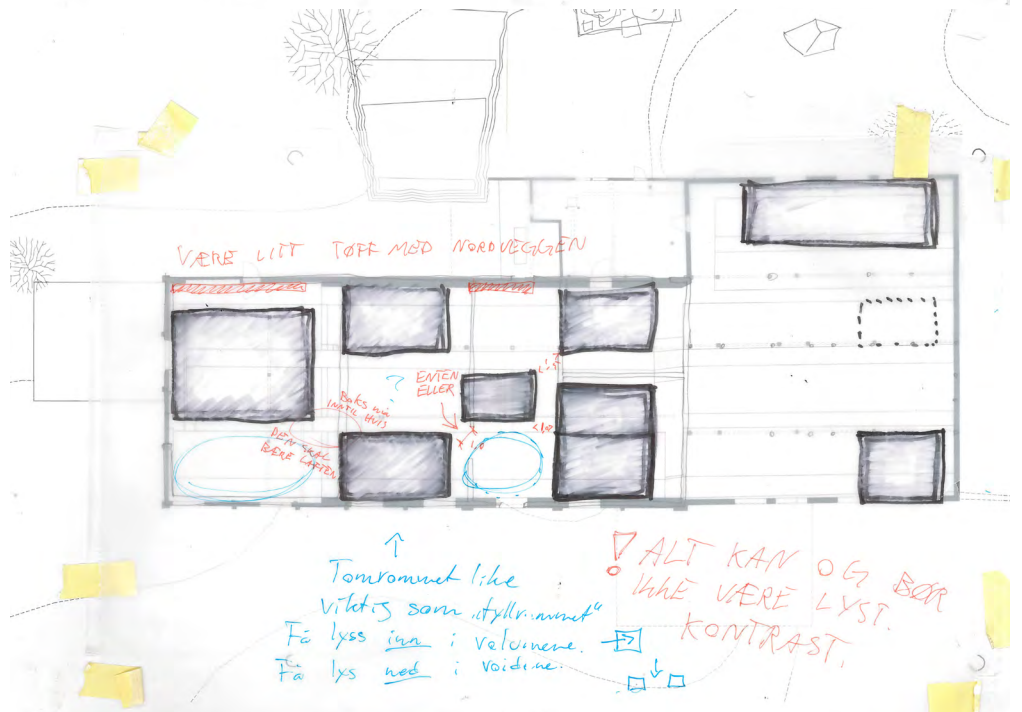 VÆRE LITT TØFF MED NORDVEGGEN
<1.5
ENTEN
ELLER
?
Boks må
INNTIL HUIS
DEN SKAL
BÆRE LAFTEN
<1.0
1.0
Tomrommet like
viktig som „fyllrommet"
Få lyss inn i volumene.
Få lys ned i voidene.
! ALT KAN OG BØR
IKKE VÆRE LYST.
KONTRAST.